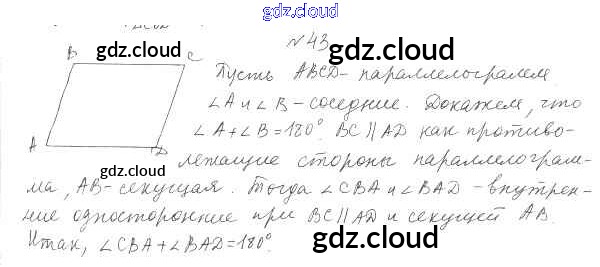 gdz.cloud
№43
B C
gdz.cloud
gdz.cloud
Пусть ABCD - параллелограмм
∠A и ∠B - соседние. Докажем, что
∠A+∠B=180° BC∥AD как противо-
A D
gdz.cloud
gdz.cloud
лежащие стороны параллелограм-
ма, AB - секущая. Тогда ∠CBA и ∠BAD - внутрен-
ние односторонние при BC∥AD и секущей AB.
Итак, ∠CBA+∠BAD=180°.
gdz.cloud